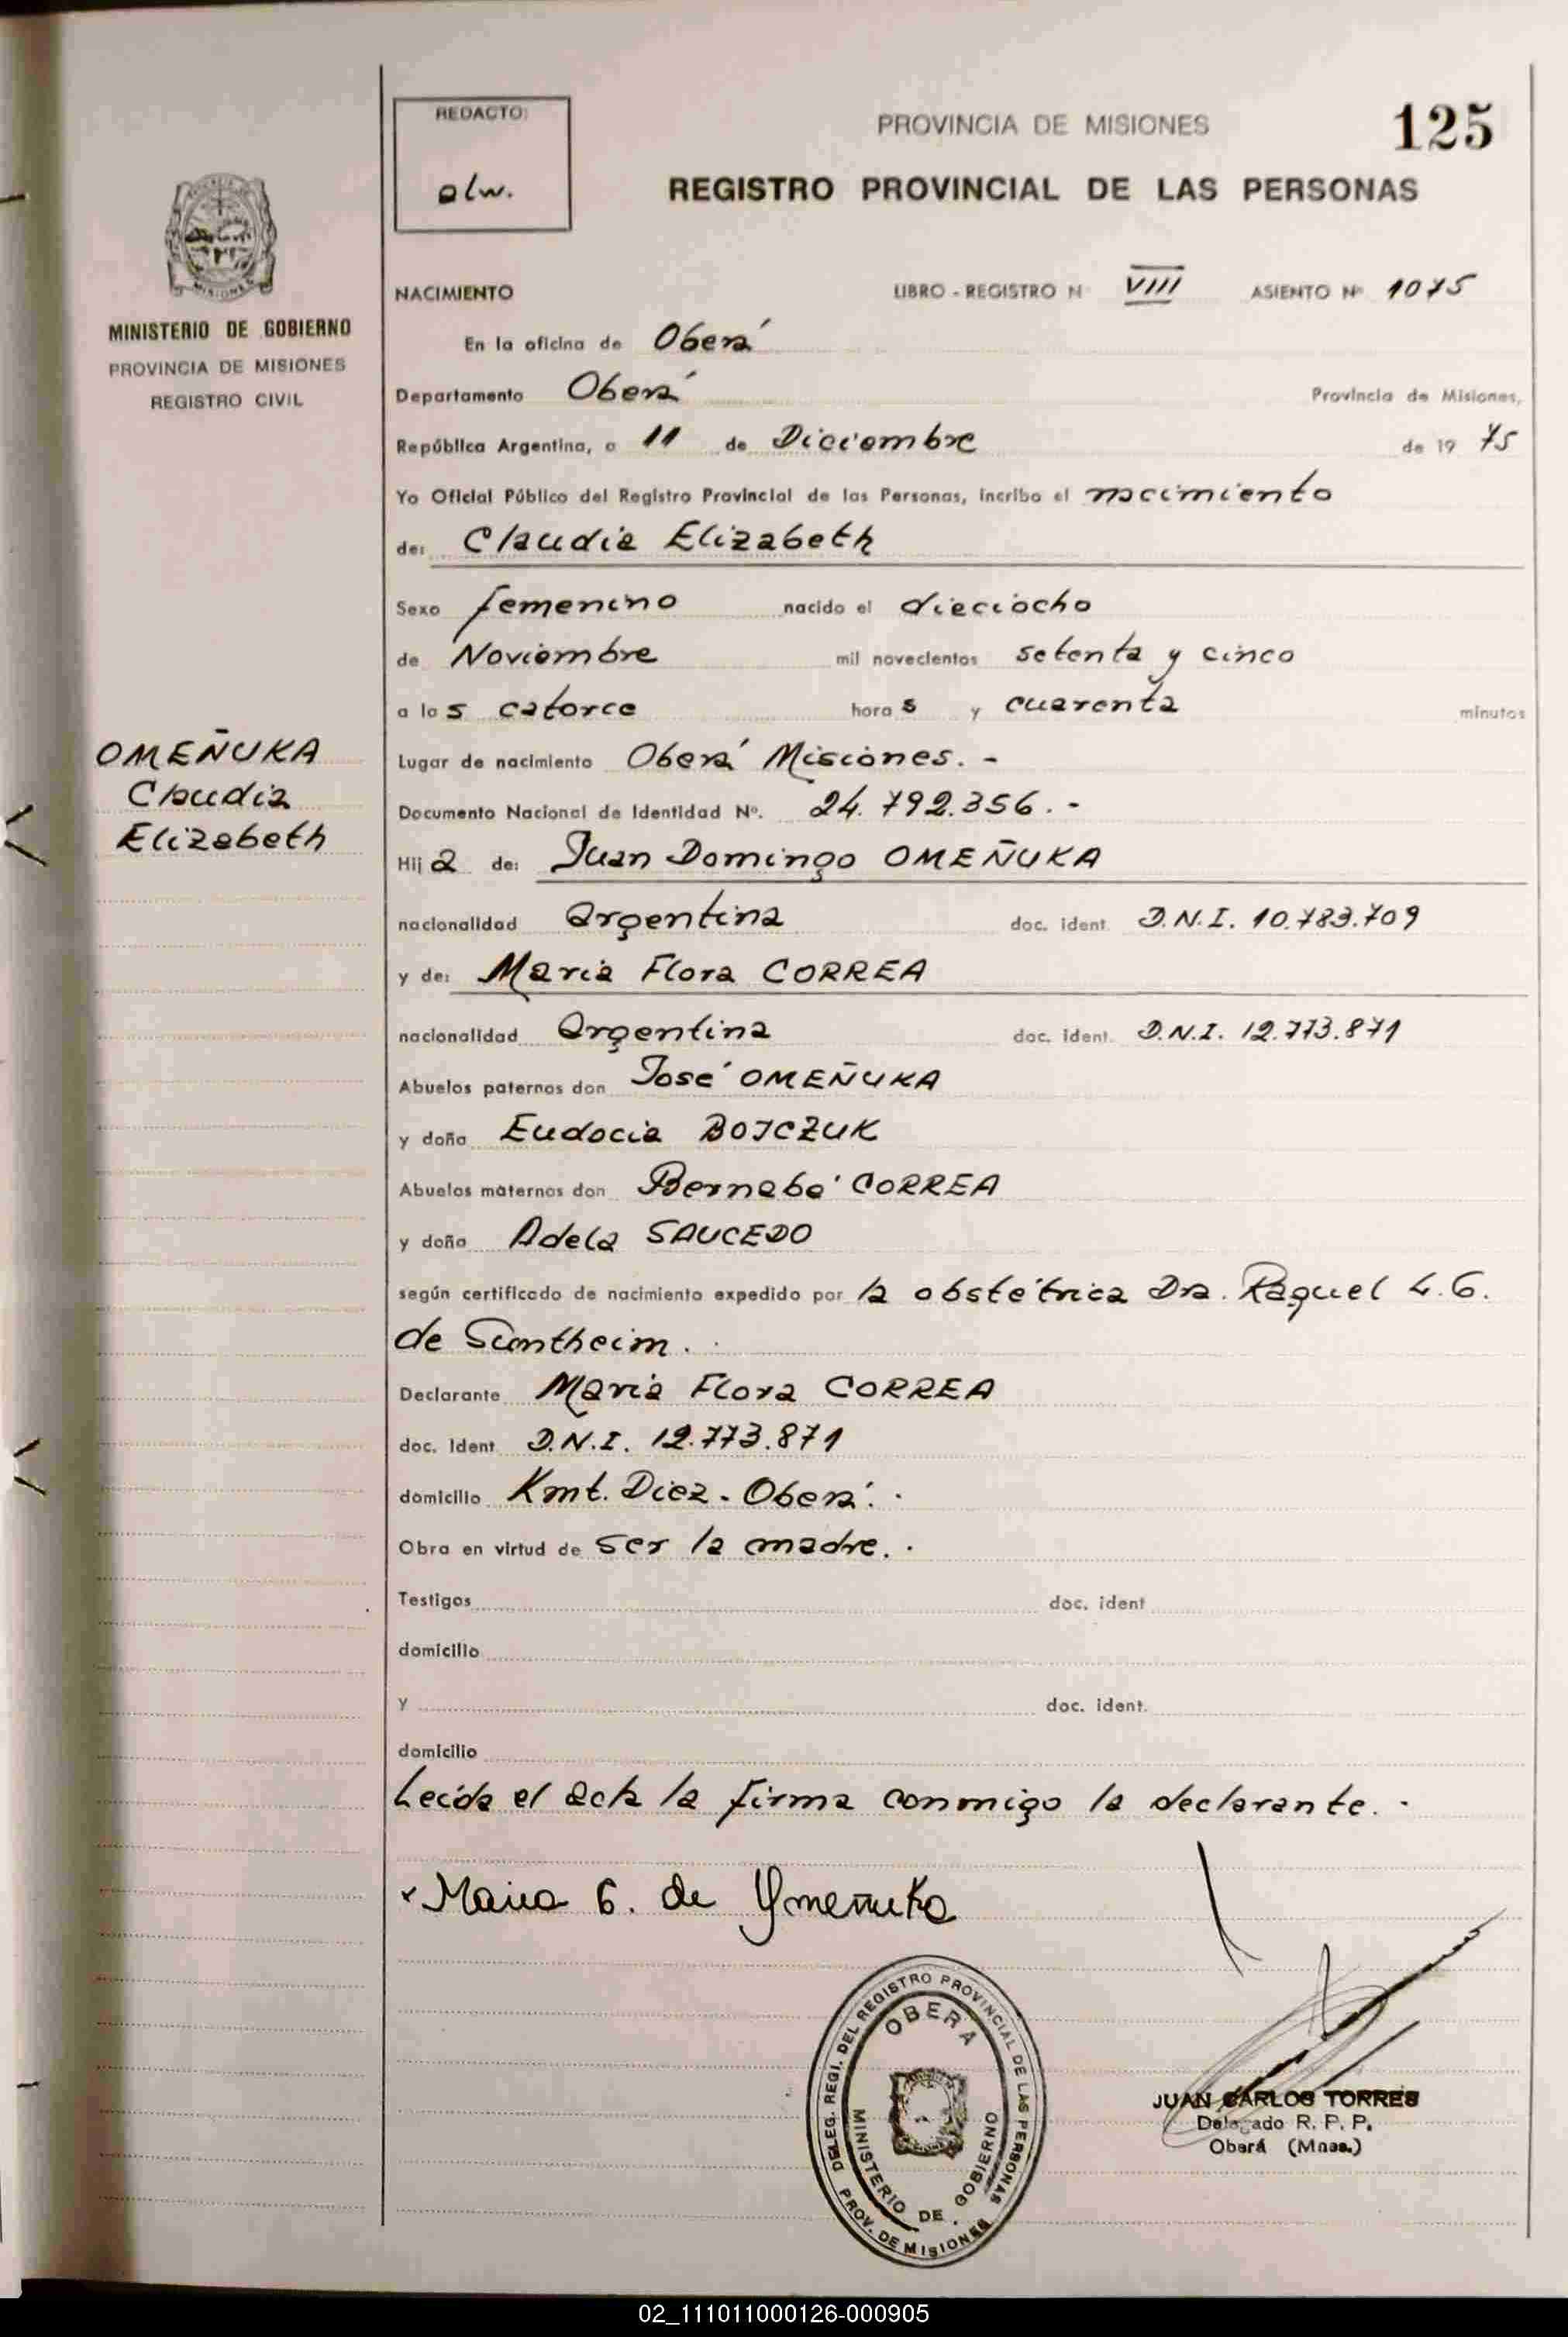 REDACTO:
alw.
PROVINCIA DE MISIONES
125
REGISTRO PROVINCIAL DE LAS PERSONAS
MISIONES
MINISTERIO DE GOBIERNO
PROVINCIA DE MISIONES
REGISTRO CIVIL
NACIMIENTO LIBRO - REGISTRO N VIII ASIENTO Nº 1075
En la oficina de Oberá
Departamento Oberá Provincia de Misiones,
República Argentina, a 11 de Diciembre de 19 75
Yo Oficial Público del Registro Provincial de las Personas, incribo el nacimiento
de: Claudia Elizabeth
Sexo femenino nacido el dieciocho
de Noviembre mil novecientos setenta y cinco
a las catorce horas y cuarenta minutos
OMEÑUKA
Claudia
Elizabeth
Lugar de nacimiento Oberá Misiones. -
Documento Nacional de Identidad Nº. 24.792.356. -
Hija de: Juan Domingo OMEÑUKA
nacionalidad Argentina doc. ident. D.N.I. 10.783.709
y de: Maria Flora CORREA
nacionalidad Argentina doc. ident. D.N.I. 12.773.871
Abuelos paternos don José OMEÑUKA
y doña Eudocia BOJCZUK
Abuelos maternos don Bernabé CORREA
y doña Adela SAUCEDO
según certificado de nacimiento expedido por la obstétrica Dra. Raquel L.G.
de Suntheim.
Declarante Maria Flora CORREA
doc. Ident D.N.I. 12.773.871
domicilio Kmt. Diez - Oberá.
Obra en virtud de ser la madre.
Testigos doc. ident
domicilio
y doc. ident.
domicilio
Leída el acta la firma conmigo la declarante. -
Maria C. de Ymeñuka
DELEG. REGI. DEL REGISTRO PROVINCIAL DE LAS PERSONAS
OBERA
MINISTERIO DE GOBIERNO
PROV. DE MISIONES
JUAN CARLOS TORRES
Delegado R. P. P.
Oberá (Mnes.)
02_111011000126-000905